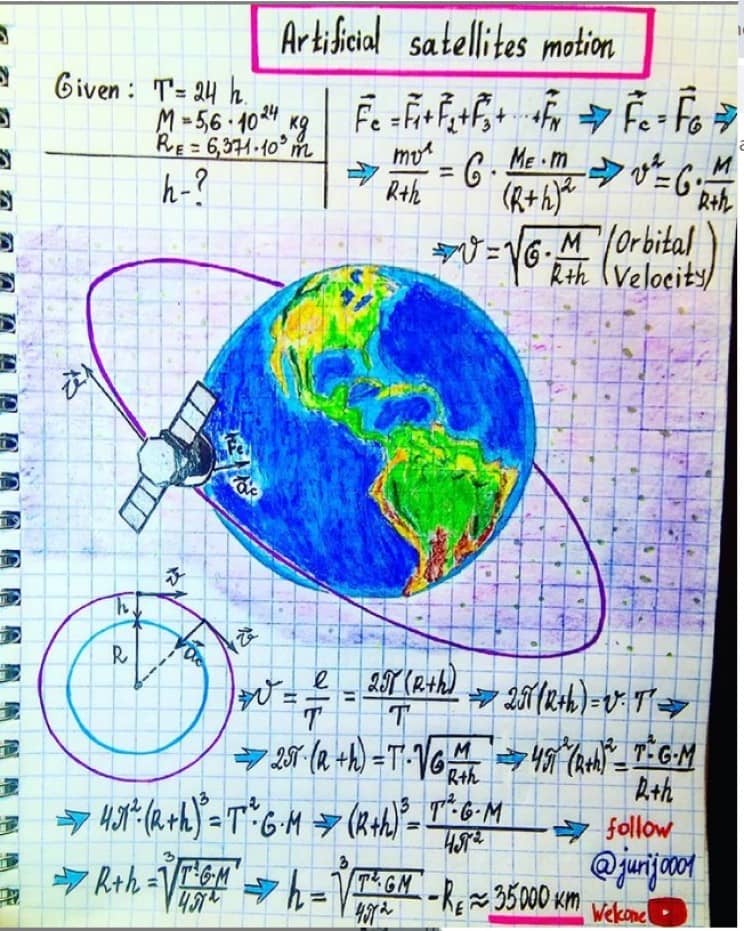 Artificial satellites motion
Given : T = 24 h.
M = 5,6 · 10²⁴ kg
R_E = 6,371 · 10³ m
h - ?
F⃗c = F⃗₁ + F⃗₂ + F⃗₃ + ... + F⃗_N ⇒ F⃗c = F⃗_G ⇒
⇒ mv²/(R+h) = G · (M_E · m)/(R+h)² ⇒ v² = G · M/(R+h)
⇒ v = √(G · M/(R+h)) (Orbital Velocity)
v⃗
F⃗c
a⃗c
v⃗
h
R
a⃗c
v⃗
⇒ v = l/T = 2π(R+h)/T ⇒ 2π(R+h) = v · T ⇒
⇒ 2π · (R+h) = T · √(G M/(R+h)) ⇒ 4π²(R+h)² = T² · G · M/(R+h)
⇒ 4π² · (R+h)³ = T² · G · M ⇒ (R+h)³ = T² · G · M/4π² ⇒
⇒ R+h = ³√(T² · G · M/4π²) ⇒ h = ³√(T² · GM/4π²) - R_E ≈ 35000 km
follow
@jurij0001
Welcome